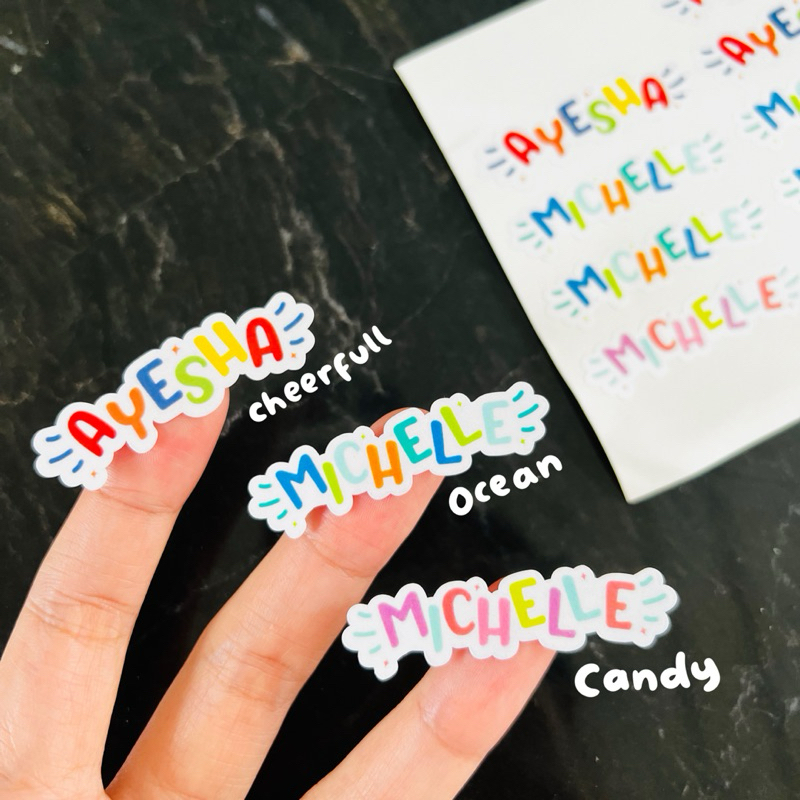 AYESHA
AYE
MICHELLE
MI
MICHELLE
MICHELLE
AYESHA
cheerfull
MICHELLE
Ocean
MICHELLE
Candy